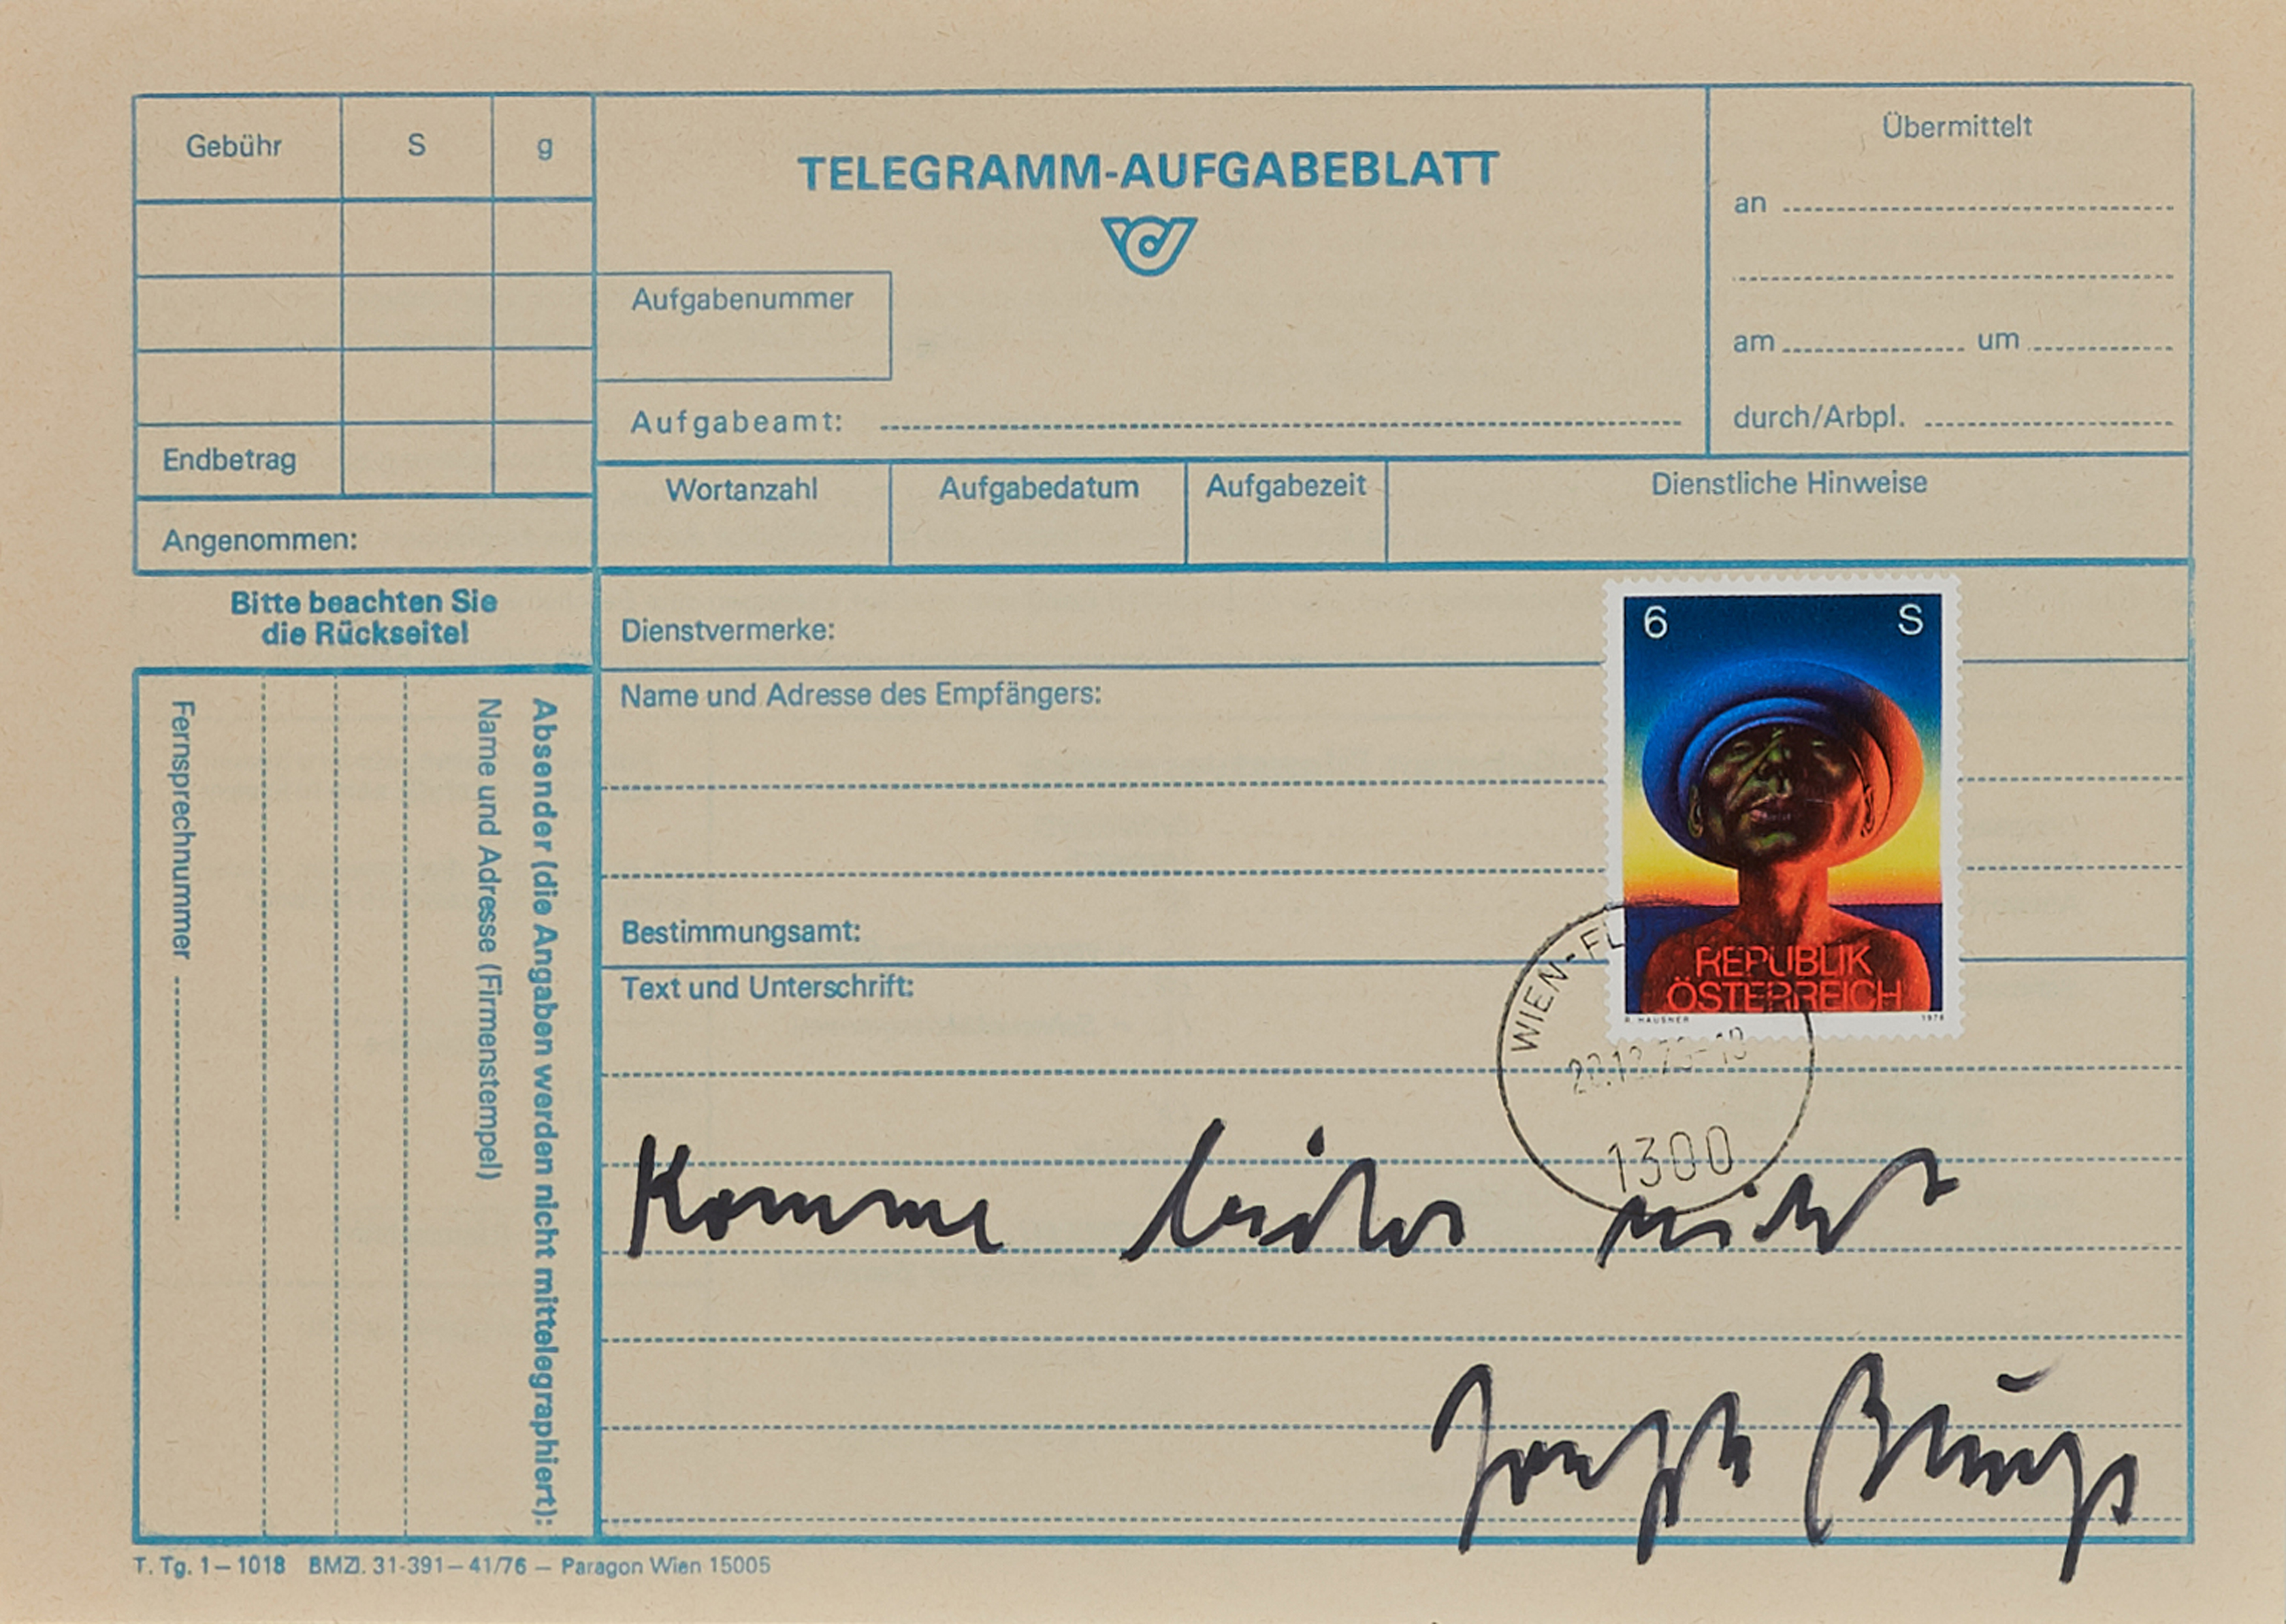 Gebühr S g
TELEGRAMM-AUFGABEBLATT
Übermittelt
an
am um
durch/Arbpl.
Aufgabenummer
Aufgabeamt:
Endbetrag
Angenommen:
Wortanzahl Aufgabedatum Aufgabezeit Dienstliche Hinweise
Bitte beachten Sie
die Rückseite!
Absender (die Angaben werden nicht mittelegraphiert):
Name und Adresse (Firmenstempel)
Fernsprechnummer
Dienstvermerke:
Name und Adresse des Empfängers:
Bestimmungsamt:
Text und Unterschrift:
6 S
REPUBLIK
ÖSTERREICH
R. HAUSNER 1978
WIEN-FL
1300
Komme leider nicht
Joseph Beuys
T. Tg. 1 – 1018 BMZl. 31-391 – 41/76 — Paragon Wien 15005